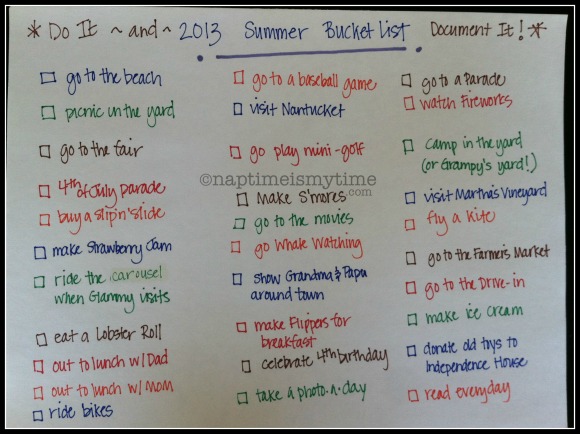 * Do It ~ and ~ 2013 Summer Bucket List Document It! *
go to the beach
picnic in the yard
go to the fair
4th of July parade
buy a slip n' slide
make Strawberry Jam
ride the carousel
when Glammy visits
eat a Lobster Roll
out to lunch w/ Dad
out to lunch w/ mom
ride bikes
go to a baseball game
visit Nantucket
go play mini-golf
©naptimeismytime
.com
make S'mores
go to the movies
go Whale Watching
show Grandma & Papa
around town
make Flippers for
breakfast
celebrate 4th birthday
take a photo·a·day
go to a Parade
watch Fireworks
camp in the yard
(or Grampy's yard!)
visit Martha's Vineyard
fly a kite
go to the Farmer's Market
go to the Drive-in
make ice cream
donate old toys to
Independence House
read everyday